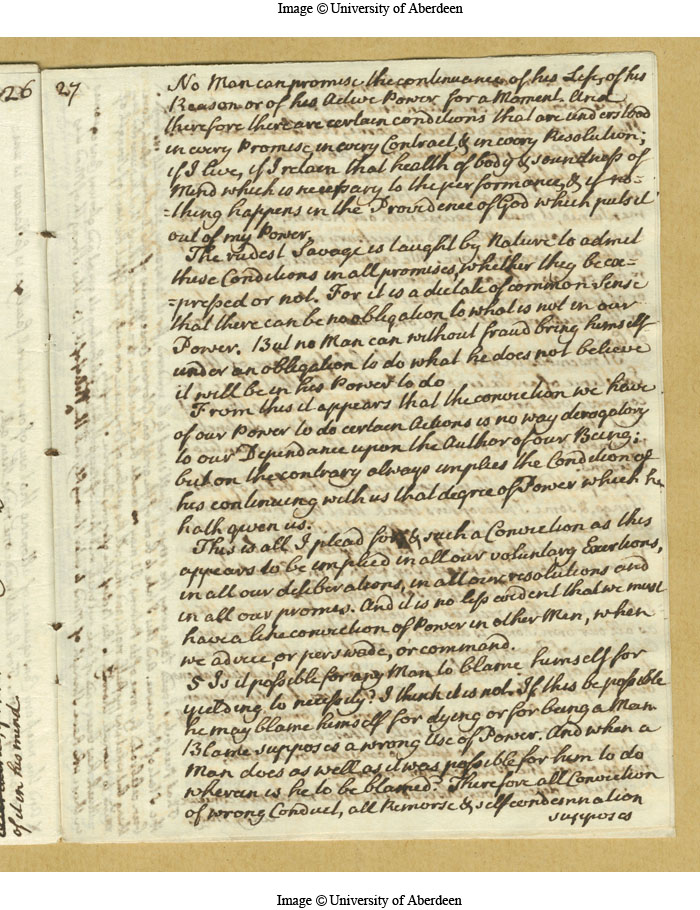 Image © University of Aberdeen
26
27
No Man can promise the continuance of his Life, of his
Reason or of his Active Power for a Moment. And
therefore there are certain conditions that are understood
in every Promise, in every Contract, & in every Resolution;
if I live, if I retain that health of body & soundness of
Mind which is necessary to the performance, & if no-
-thing happens in the Providence of God which puts it
out of my Power.
The rudest Savage is taught by Nature to admit
these Conditions in all promises, whether they be ex=
=pressed or not. For it is a dictate of common Sense
that there can be no obligation to what is not in our
Power. But no Man can without fraud bring himself
under an obligation to do what he does not believe
it will be in his Power to do
From this it appears that the conviction we have
of our Power to do certain Actions is no way derogatory
to our Dependance upon the Author of our Being;
but on the contrary always implies the Condition of
his continuing with us that degree of Power which he
hath given us.
This is all I plead for & such a Conviction as this
appears to be implied in all our voluntary Exertions,
in all our deliberations, in all our resolutions and
in all our promises. And it is no less evident that we must
have a like conviction of Power in other Men, when
we advice, or perswade, or command.
5 Is it possible for any Man to blame himself for
yielding to necessity? I think it is not. If this be possible
he may blame himself for dying or for being a Man.
Blame supposes a wrong Use of Power. And when a
Man does as well as it was possible for him to do
wherein is he to be blamed? Therefore all Conviction
of wrong Conduct, all Remorse & self condemnation
supposes
of it in his mind.
Image © University of Aberdeen